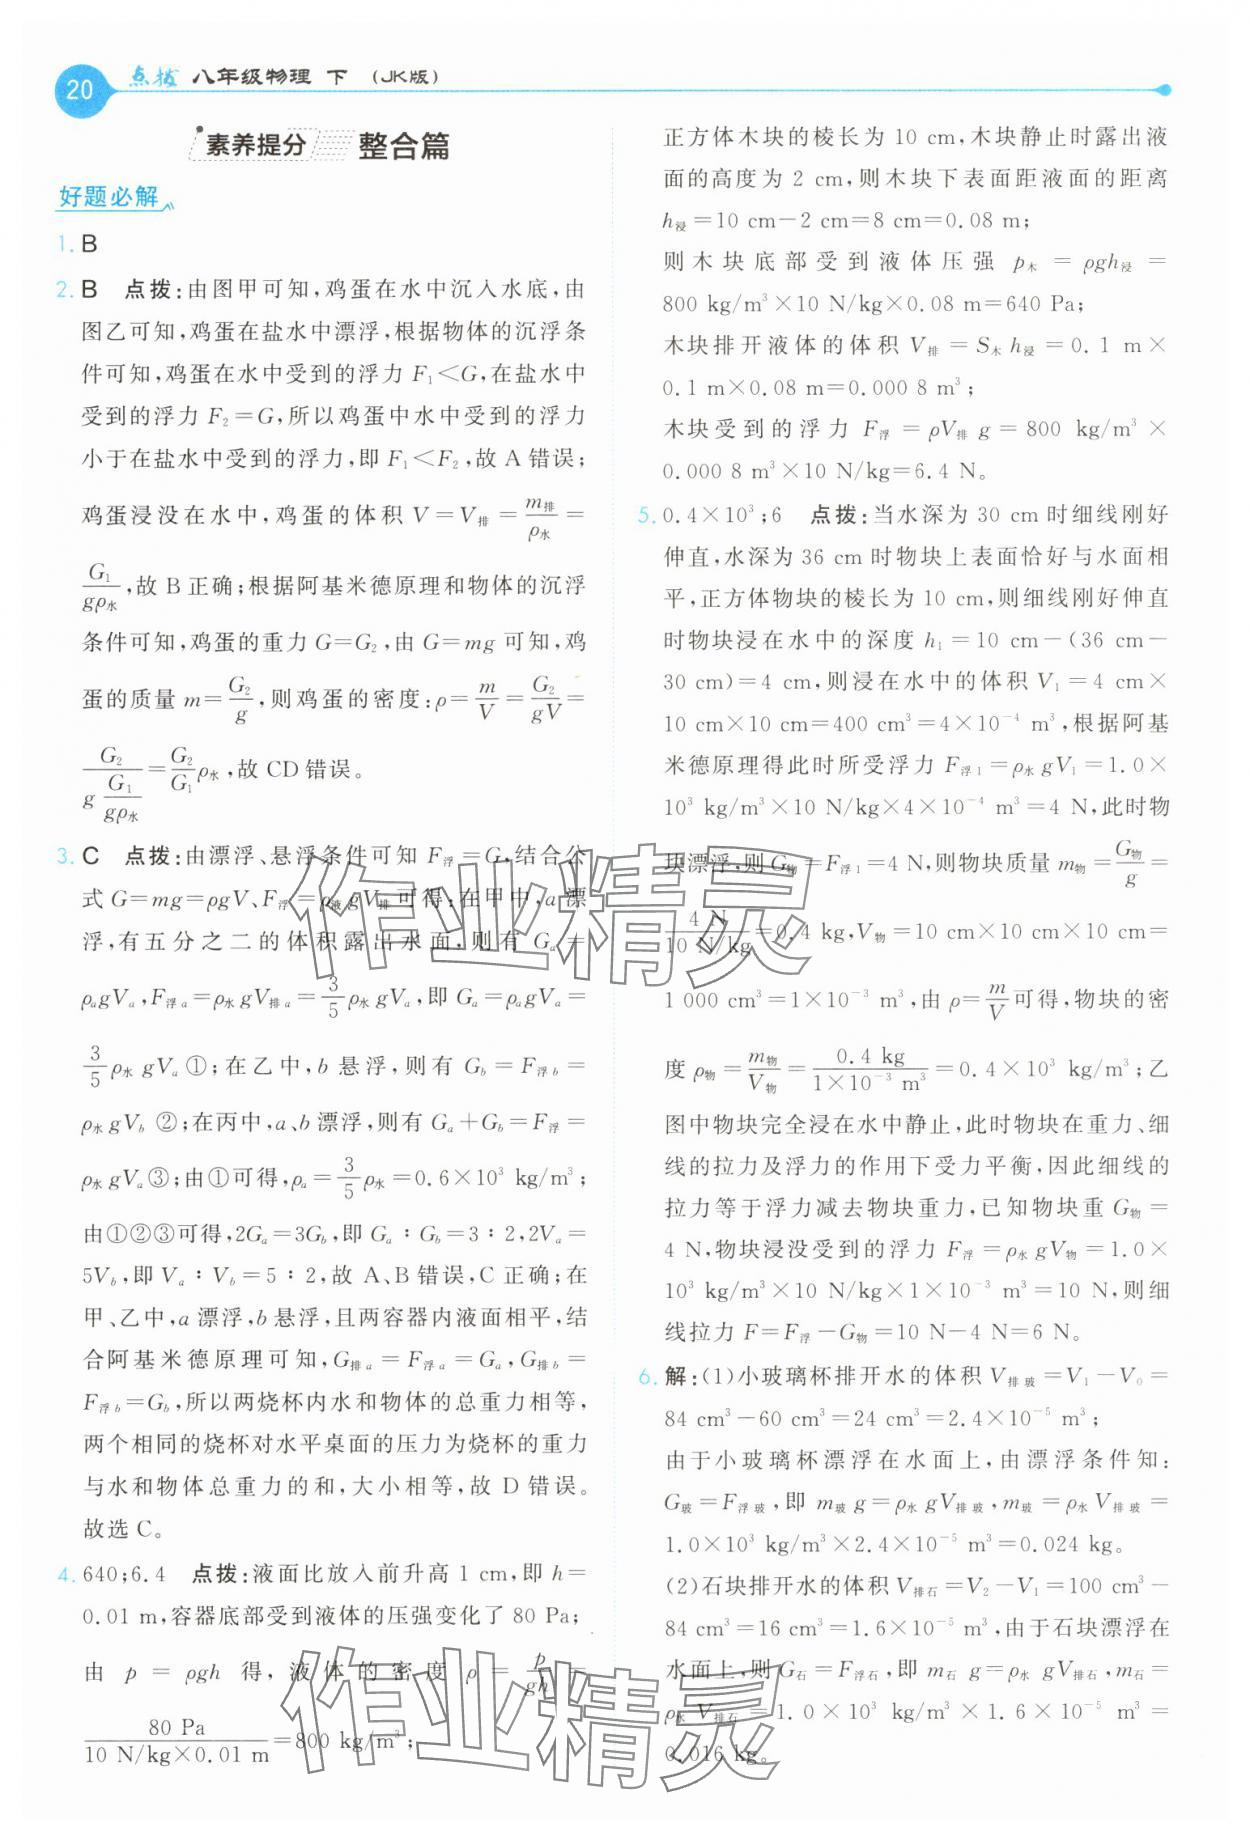 20 点拨 八年级物理 下 (JK版)
素养提分 整合篇
好题必解
1. B
2. B 点拨:由图甲可知,鸡蛋在水中沉入水底,由
图乙可知,鸡蛋在盐水中漂浮,根据物体的沉浮条
件可知,鸡蛋在水中受到的浮力 F₁＜G,在盐水中
受到的浮力 F₂=G,所以鸡蛋中水中受到的浮力
小于在盐水中受到的浮力,即 F₁＜F₂,故 A 错误;
鸡蛋浸没在水中,鸡蛋的体积 V=V排=m排/ρ水=
G₁/gρ水,故 B 正确;根据阿基米德原理和物体的沉浮
条件可知,鸡蛋的重力 G=G₂,由 G=mg 可知,鸡
蛋的质量 m=G₂/g,则鸡蛋的密度:ρ=m/V=G₂/gV=
G₂/(g G₁/gρ水)=G₂/G₁ρ水,故 CD 错误。
3. C 点拨:由漂浮、悬浮条件可知 F浮=G,结合公
式 G=mg=ρgV、F浮=ρ液gV排 可得:在甲中,a 漂
浮,有五分之二的体积露出水面,则有 Ga=
ρagVa,F浮a=ρ水gV排a=3/5ρ水gVa,即 Ga=ρagVa=
3/5ρ水gVa①;在乙中,b 悬浮,则有 Gb=F浮b=
ρ水gVb ②;在丙中,a、b 漂浮,则有 Ga+Gb=F浮=
ρ水gVa③;由①可得,ρa=3/5ρ水=0.6×10³ kg/m³;
由①②③可得,2Ga=3Gb,即 Ga∶Gb=3∶2,2Va=
5Vb,即 Va∶Vb=5∶2,故 A、B 错误,C 正确;在
甲、乙中,a 漂浮,b 悬浮,且两容器内液面相平,结
合阿基米德原理可知,G排a=F浮a=Ga,G排b=
F浮b=Gb,所以两烧杯内水和物体的总重力相等,
两个相同的烧杯对水平桌面的压力为烧杯的重力
与水和物体总重力的和,大小相等,故 D 错误。
故选 C。
4. 640;6.4 点拨:液面比放入前升高 1 cm,即 h=
0.01 m,容器底部受到液体的压强变化了 80 Pa;
由 p=ρgh 得,液体的密度 ρ=p/gh=
80 Pa/(10 N/kg×0.01 m)=800 kg/m³;
正方体木块的棱长为 10 cm,木块静止时露出液
面的高度为 2 cm,则木块下表面距液面的距离
h浸=10 cm-2 cm=8 cm=0.08 m;
则木块底部受到液体压强 p木=ρgh浸=
800 kg/m³×10 N/kg×0.08 m=640 Pa;
木块排开液体的体积 V排=S木h浸=0.1 m×
0.1 m×0.08 m=0.000 8 m³;
木块受到的浮力 F浮=ρV排g=800 kg/m³×
0.000 8 m³×10 N/kg=6.4 N。
5. 0.4×10³;6 点拨:当水深为 30 cm 时细线刚好
伸直,水深为 36 cm 时物块上表面恰好与水面相
平,正方体物块的棱长为 10 cm,则细线刚好伸直
时物块浸在水中的深度 h₁=10 cm-(36 cm-
30 cm)=4 cm,则浸在水中的体积 V₁=4 cm×
10 cm×10 cm=400 cm³=4×10⁻⁴ m³,根据阿基
米德原理得此时所受浮力 F浮1=ρ水gV₁=1.0×
10³ kg/m³×10 N/kg×4×10⁻⁴ m³=4 N,此时物
块漂浮,则 G物=F浮1=4 N,则物块质量 m物=G物/g=
4 N/(10 N/kg)=0.4 kg,V物=10 cm×10 cm×10 cm=
1 000 cm³=1×10⁻³ m³,由 ρ=m/V可得,物块的密
度 ρ物=m物/V物=0.4 kg/(1×10⁻³ m³)=0.4×10³ kg/m³;乙
图中物块完全浸在水中静止,此时物块在重力、细
线的拉力及浮力的作用下受力平衡,因此细线的
拉力等于浮力减去物块重力,已知物块重 G物=
4 N,物块浸没受到的浮力 F浮=ρ水gV物=1.0×
10³ kg/m³×10 N/kg×1×10⁻³ m³=10 N,则细
线拉力 F=F浮-G物=10 N-4 N=6 N。
6. 解:(1)小玻璃杯排开水的体积 V排玻=V₁-V₀=
84 cm³-60 cm³=24 cm³=2.4×10⁻⁵ m³;
由于小玻璃杯漂浮在水面上,由漂浮条件知:
G玻=F浮玻,即 m玻g=ρ水gV排玻,m玻=ρ水V排玻=
1.0×10³ kg/m³×2.4×10⁻⁵ m³=0.024 kg。
(2)石块排开水的体积 V排石=V₂-V₁=100 cm³-
84 cm³=16 cm³=1.6×10⁻⁵ m³,由于石块漂浮在
水面上,则 G石=F浮石,即 m石g=ρ水gV排石,m石=
ρ水V排石=1.0×10³ kg/m³×1.6×10⁻⁵ m³=
0.016 kg。
作业精灵
作业精灵